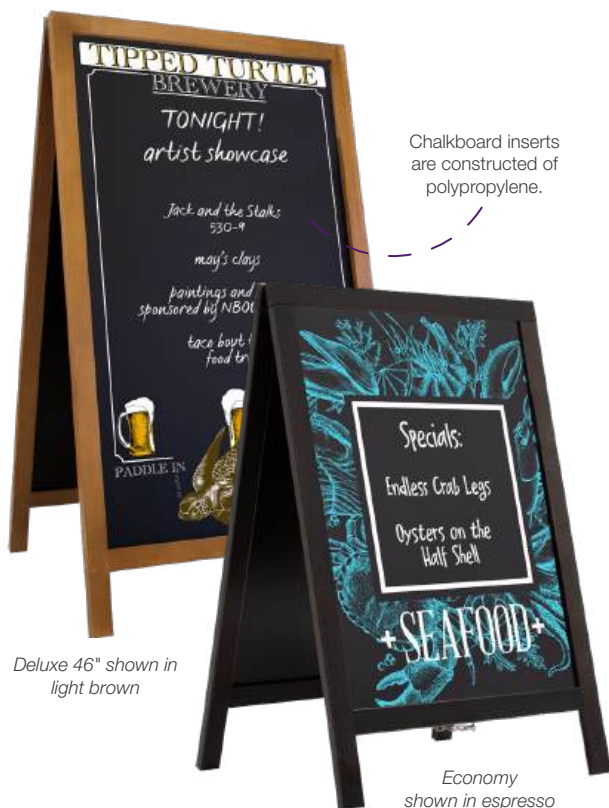 TIPPED TURTLE
BREWERY
TONIGHT!
artist showcase
Jack and the Stalks
530-9
may's clays
paintings and
sponsored by
taco bout
food
PADDLE IN
Chalkboard inserts
are constructed of
polypropylene.
Specials:
Endless Crab Legs
Oysters on the
Half Shell
+SEAFOOD+
Deluxe 46" shown in
light brown
Economy
shown in espresso